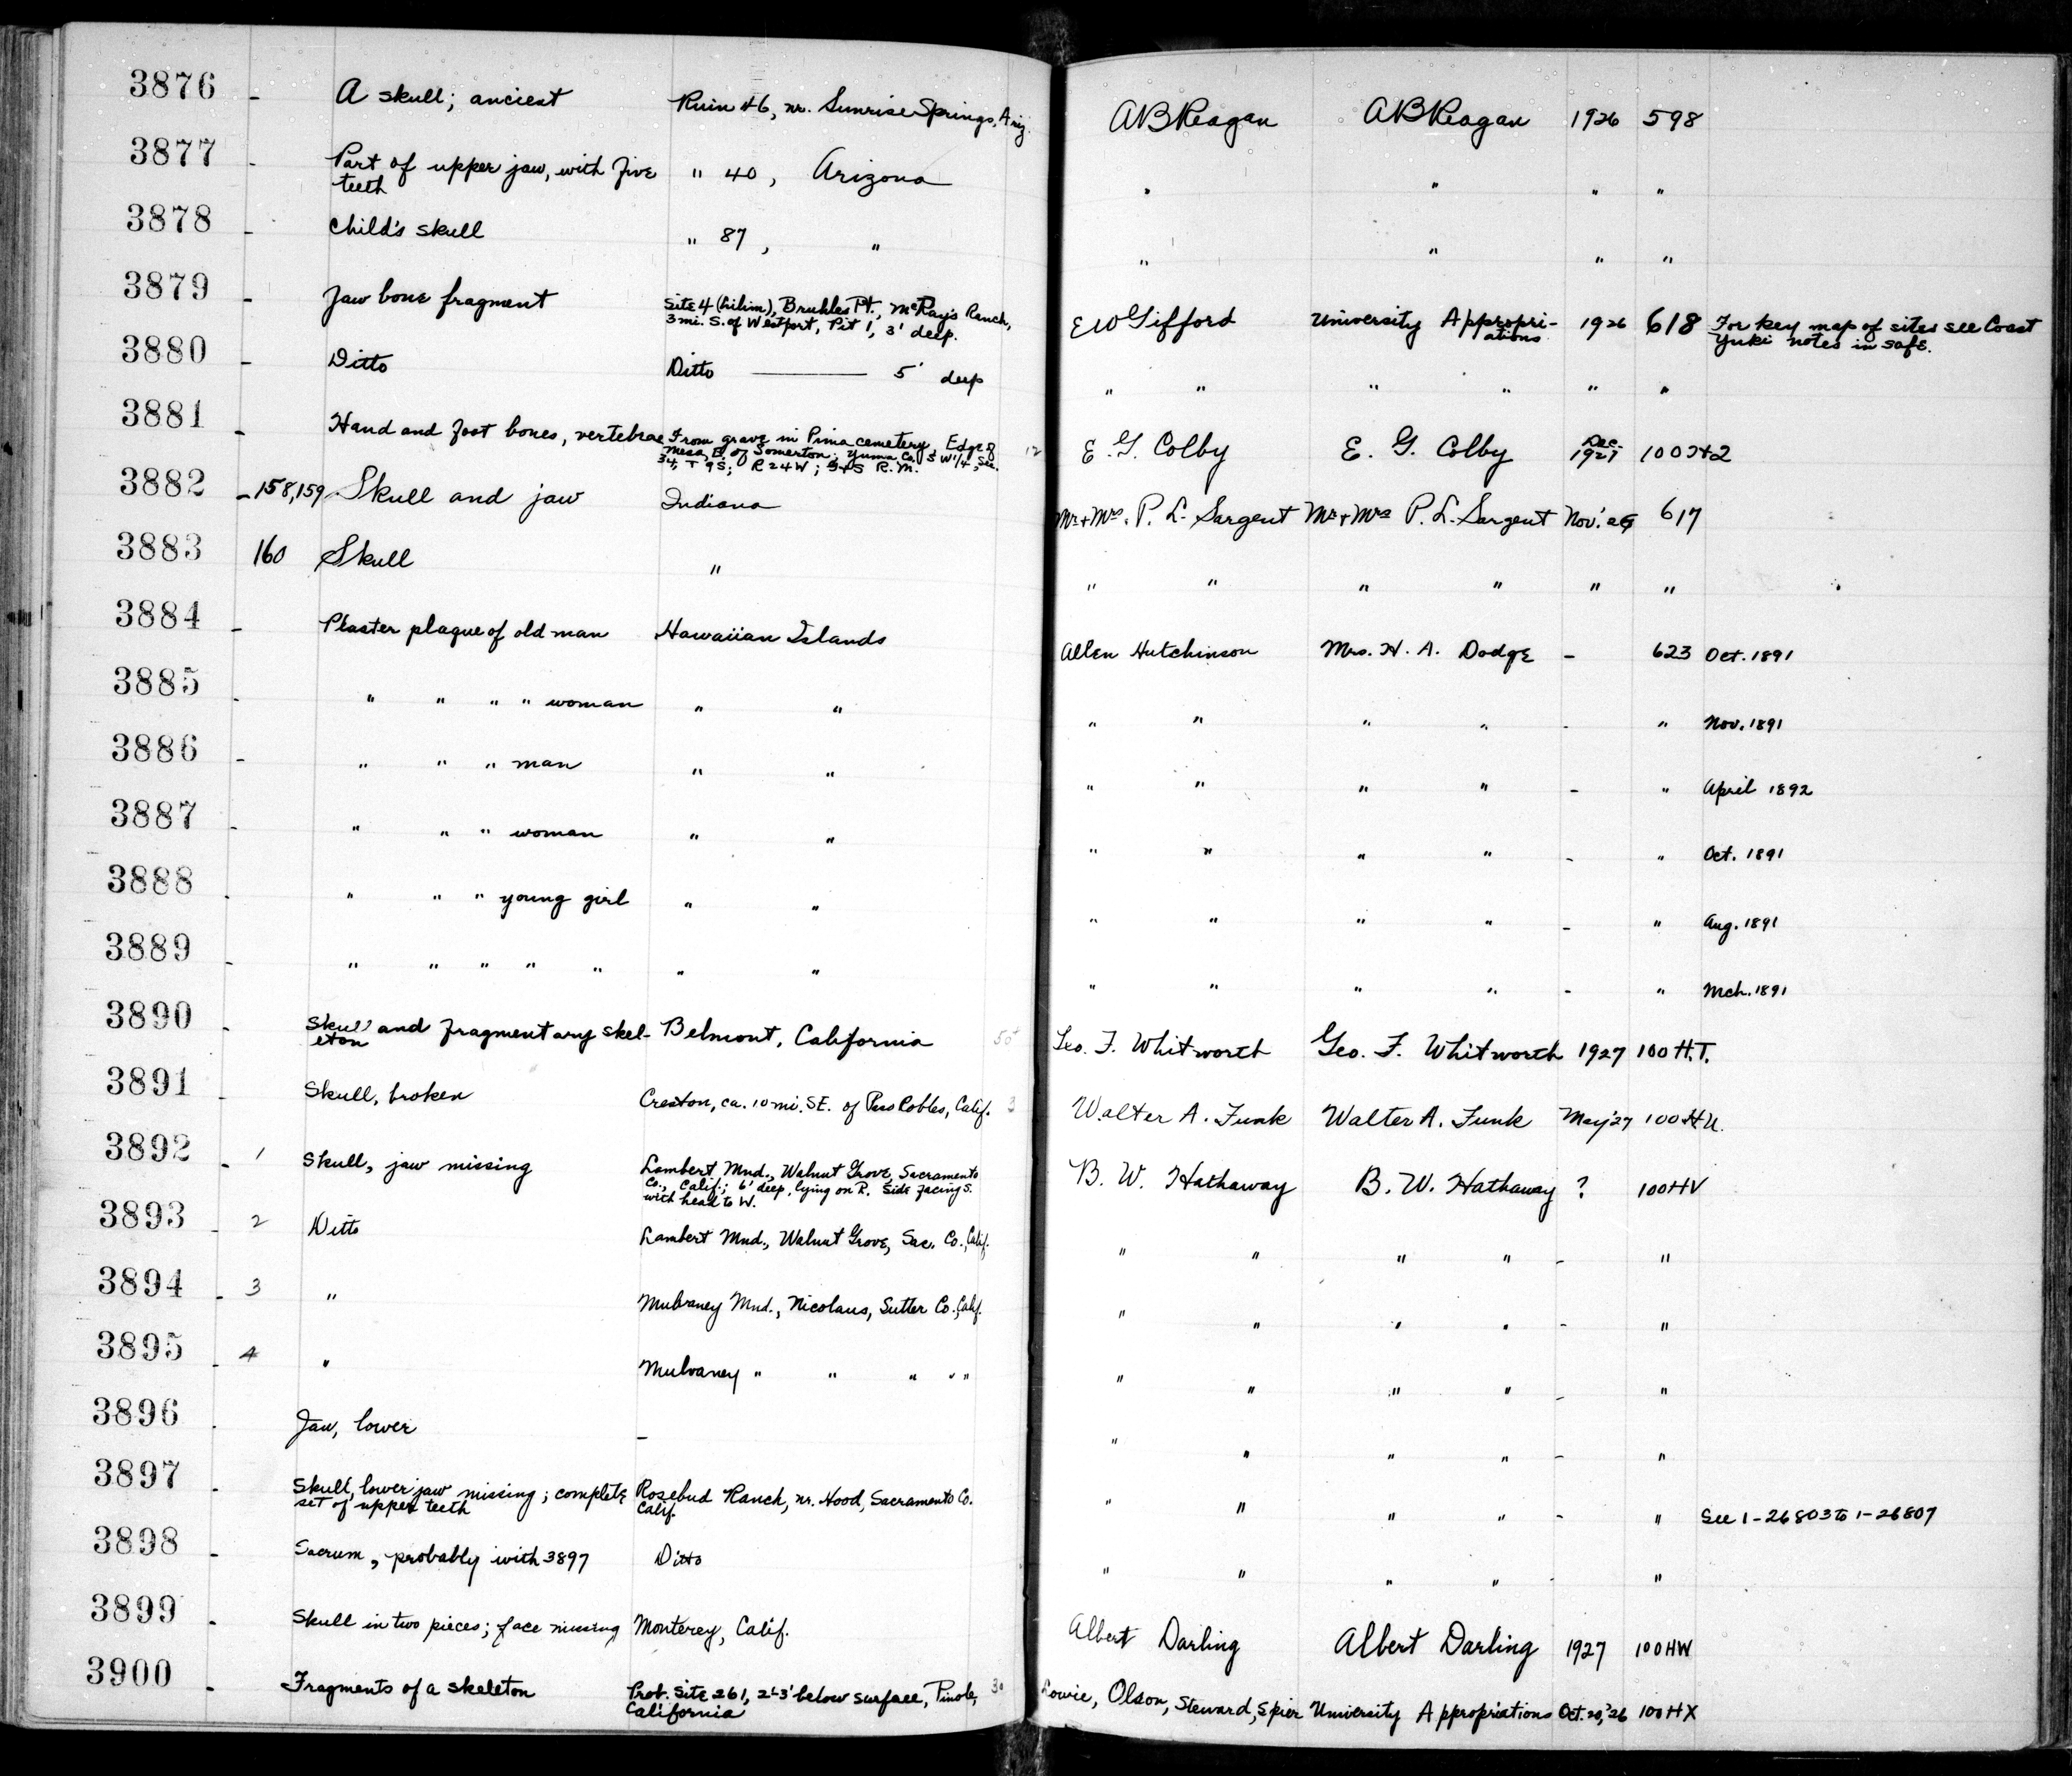 3876 - A skull; ancient Ruin 46, nr. Sunrise Springs, Ariz. ABReagan ABReagan 1926 598
3877 - Part of upper jaw, with five " 40, Arizona " " " "
teeth
3878 - Child's skull " 87, " " " " "
3879 - Jaw bone fragment Site 4 (Lilim), Bruhles Pt., McRay's Ranch, E W Gifford University Appropri- 1926 618 For key map of sites see Coast
3 mi. S. of Westport, Pit 1, 3' deep. ations Yuki notes in safe.
3880 - Ditto Ditto — 5' deep " " " " " "
3881 - Hand and foot bones, vertebrae From grave in Pima cemetery, Edge of 12 E. G. Colby E. G. Colby Dec. 100H2
Mesa, E. of Somerton; Yuma Co., SW 1/4, Sec. 1927
34, T 9 S; R 24 W; G+S R. M.
3882 - 158,159 Skull and jaw Indiana Mr + Mrs. P. L. Sargent Mr + Mrs P. L. Sargent Nov. '26 617
3883 160 Skull " " " " " " "
3884 - Plaster plaque of old man Hawaiian Islands Allen Hutchinson Mrs. H. A. Dodge - 623 Oct. 1891
3885 - " " " " woman " " " " " " - " Nov. 1891
3886 - " " " man " " " " " " - " April 1892
3887 - " " " woman " " " " " " - " Oct. 1891
3888 - " " " young girl " " " " " " - " Aug. 1891
3889 - " " " " " " " " " " " - " Mch. 1891
3890 - Skull and fragmentary skel- Belmont, California 50 Geo. F. Whitworth Geo. F. Whitworth 1927 100 H.T.
eton
3891 Skull, broken Creston, ca. 10 mi. SE. of Paso Robles, Calif. 3 Walter A. Funk Walter A. Funk May '27 100 HU.
3892 - 1 Skull, jaw missing Lambert Mnd., Walnut Grove, Sacramento B. W. Hathaway B. W. Hathaway ? 100HV
Co., Calif.; 6' deep, lying on R. side facing S.
with head to W.
3893 - 2 Ditto Lambert Mnd., Walnut Grove, Sac. Co., Calif. " " " " - "
3894 - 3 " Mulvaney Mnd., Nicolaus, Sutter Co., Calif. " " " " - "
3895 - 4 " Mulvaney " " " " " " " " " - "
3896 - Jaw, lower - " " " " - "
3897 - Skull, lower jaw missing; complete Rosebud Ranch, nr. Hood, Sacramento Co. " " " " - " See 1-26803 to 1-26807
set of upper teeth Calif.
3898 - Sacrum, probably with 3897 Ditto " " " " - "
3899 - Skull in two pieces; face missing Monterey, Calif. Albert Darling Albert Darling 1927 100HW
3900 - Fragments of a skeleton Prob. Site 261, 2'-3' below surface, Pinole, 30 Lowie, Olson, Steward, Spier University Appropriations Oct. 20, '26 100HX
California